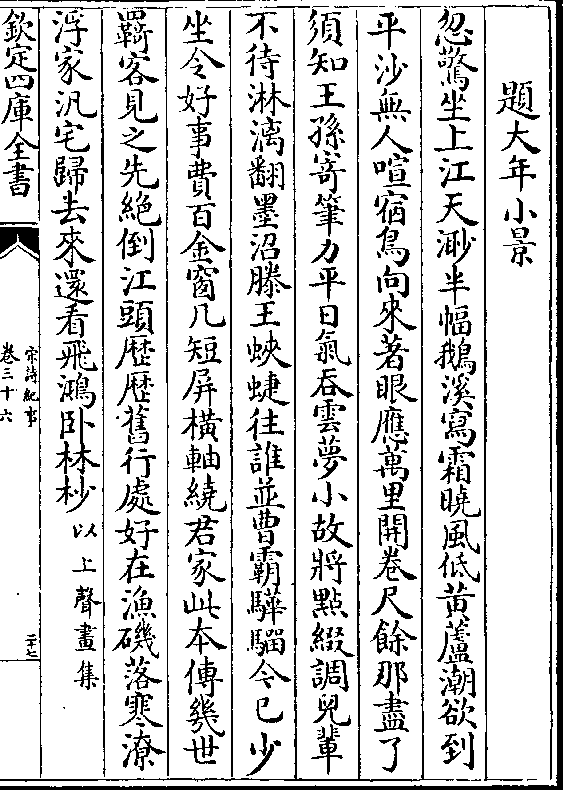 題大年小景
忽驚坐上江天渺半幅鵝溪寫霜曉風低黄蘆潮欲到
平沙無人喧宿鳥向來著眼應萬里開卷尺餘那盡了
須知王孫寄筆力平日氣吞雲夢小故將點綴調兒輩
不待淋漓翻墨沼滕王蛺蜨往誰並曹霸驊騮今已少
坐令好事費百金窗几短屏橫軸繞君家此本傳幾世
羇客見之先絶倒江頭歴歴舊行處好在漁磯落寒潦
浮家汎宅歸去來還看飛鴻卧林杪以上聲畫集
欽定四庫全書
宋詩紀事
卷三十六
二十七